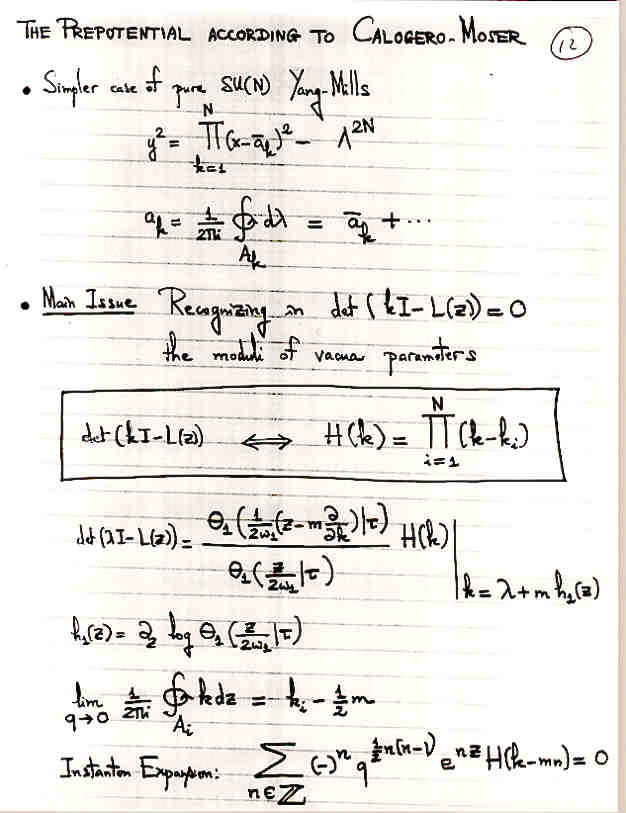 THE PREPOTENTIAL ACCORDING TO CALOGERO-MOSER 12
• Simpler case of pure SU(N) Yang-Mills
y² = ∏_{k=1}^{N} (x-ā_k)² - Λ^{2N}
a_k = 1/2πi ∮_{A_k} dλ = ā_k + ···
• Main Issue Recognizing in det (kI-L(z)) = 0
the moduli of vacua parameters
det (kI-L(z)) ⟺ H(k) = ∏_{i=1}^{N} (k-k_i)
det (λI-L(z)) = Θ₁(1/2ω₁(z-m ∂/∂k)|τ) / Θ₁(z/2ω₁|τ) H(k) |_{k=λ+m h₁(z)}
h₁(z) = ∂_z log Θ₁(z/2ω₁|τ)
lim_{q→0} 1/2πi ∮_{A_i} kdz = k_i - ½m
Instanton Expansion: ∑_{n∈ℤ} (-)ⁿ q^{½n(n-1)} e^{nz} H(k-mn) = 0